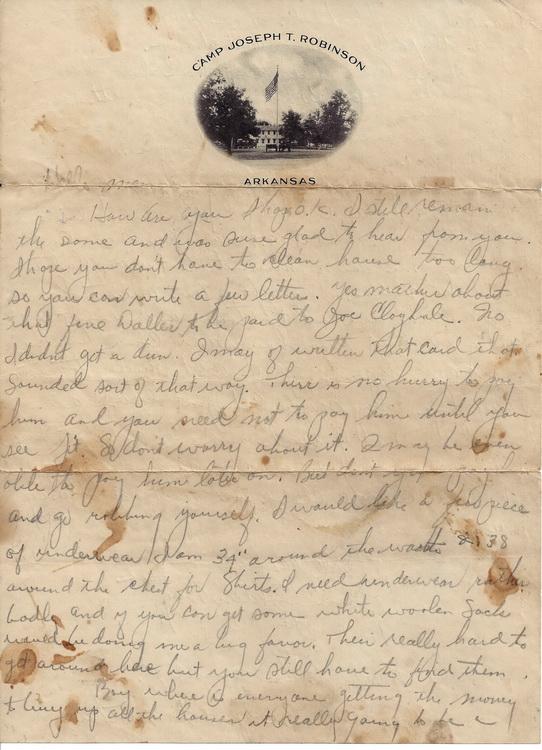 CAMP JOSEPH T. ROBINSON
ARKANSAS
How are you I hope o.k. I still remain
the some and was sure glad to hear from you.
I hope you don't have to clean house too long
so you can write a few letters. Yes mother about
that five Dallar to be paid to Joe. No
I didn't get a dun. I may of written that card that
sounded sort of that way. There is no hurry to pay
him and you need not to pay him until you
see fit. So don't worry about it. I may be even
able to pay him later on. But don't
and go robbing yourself. I would like a piece
of underwear I am 34" around the waste & 38
around the chest for Shirts. I need underwear rather
badly and if you can get some white woolen Socks
would be doing me a big favor. Their really hard to
get around here but you still have to find them.
Boy where is everyone getting the money
to buy up all the houses it really going to be